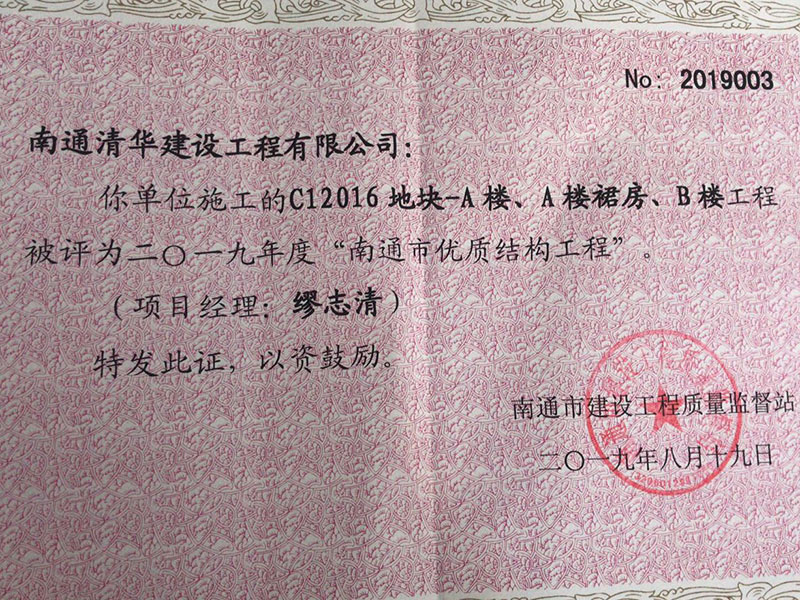 No: 2019003
南通清华建设工程有限公司:
你单位施工的C12016地块-A楼、A楼裙房、B楼工程
被评为二〇一九年度“南通市优质结构工程”。
(项目经理:缪志清)
特发此证,以资鼓励。
南通市建设工程质量监督站
二〇一九年八月十九日